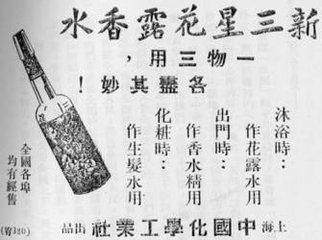 新三星花露香水
一物三用，
各盡其妙！
沐浴時：
作花露水用
出門時：
作香水精用
化粧時：
作生髮水用
全國各埠
均有經售
上海中國化學工業社出品